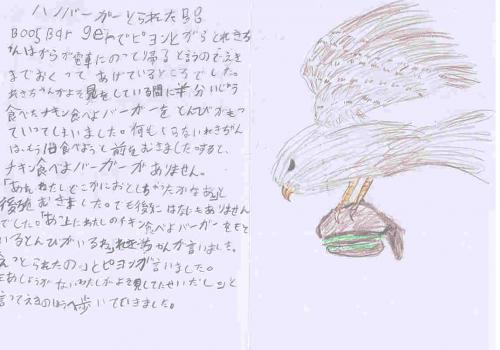 ハンバーガーとられた
でピヨンと
が電車にのって帰ると言うのでえき
までおくってあげているところでした。
ちゃんがよそ見をしている間に半分いじょう
食べたチキン食べよバーガーをとんびがもっ
ていってしまいました。何もしらない
は、もう1回食べようと前をむきました。すると、
チキン食べよバーガーがありません。
「あれわたしどこかにおとしちゃったかなあ」と
後ろをむきました。でも後ろにはなにもありません
でした。「あっ上にわたしのチキン食べよバーガーをもって
いるとんびがいるね」と ちゃんが言いました。
「えっとられたの」とピヨンが言いました。
「まあしょうがないわたしがよそ見してたせいだし」と
言ってえきのほうへ歩いていきました。